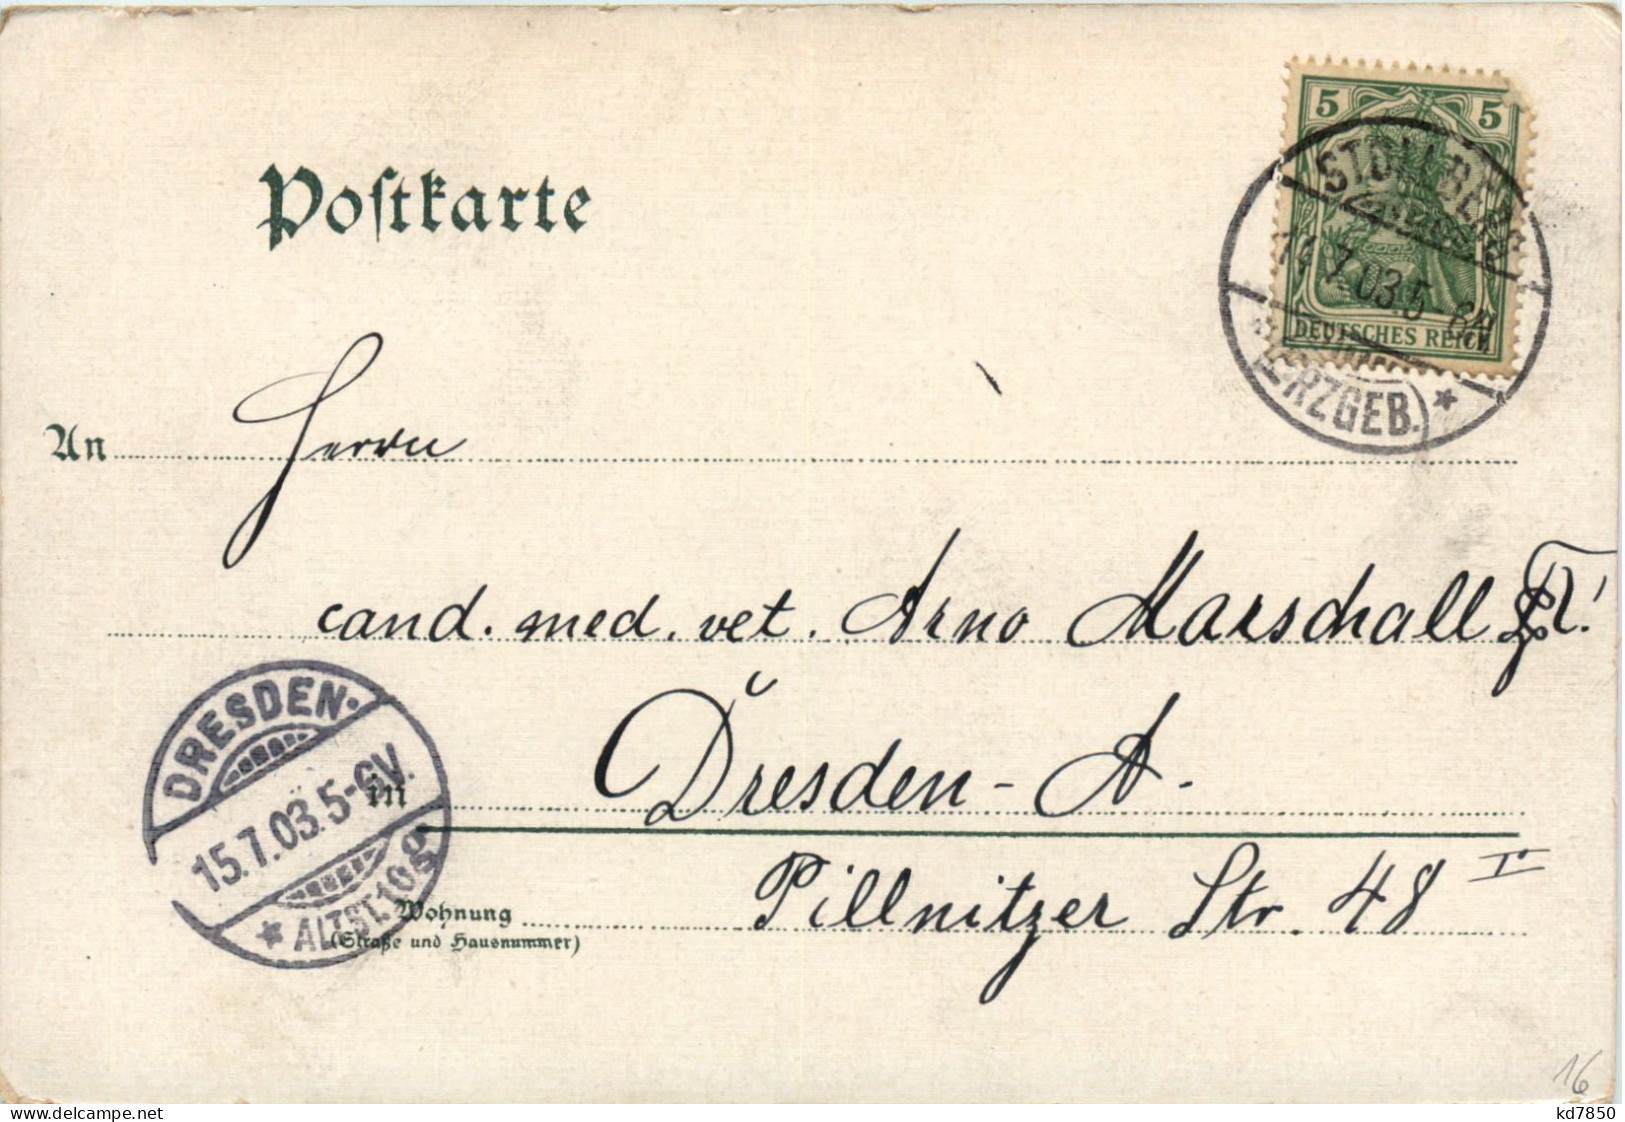 Postkarte
5 5
DEUTSCHES REICH
STOLLBERG
14.7.03.5-6N
* (ERZGEB.) *
An Herrn
cand. med. vet. Arno Marschall
in Dresden-A.
Pillnitzer Str. 48 I.
Wohnung
(Straße und Hausnummer)
DRESDEN-
15.7.03.5-6V.
* ALTST.10g
16
kd7850